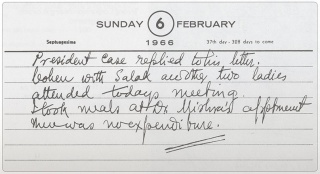 SUNDAY 6 FEBRUARY
Septuagesima 1966 37th day - 328 days to come
President Case replied to his letter.
Cohen with Salak and the two ladies
attended todays meeting.
I took meals at Dr Mishra's appttment
there was no expenditure.